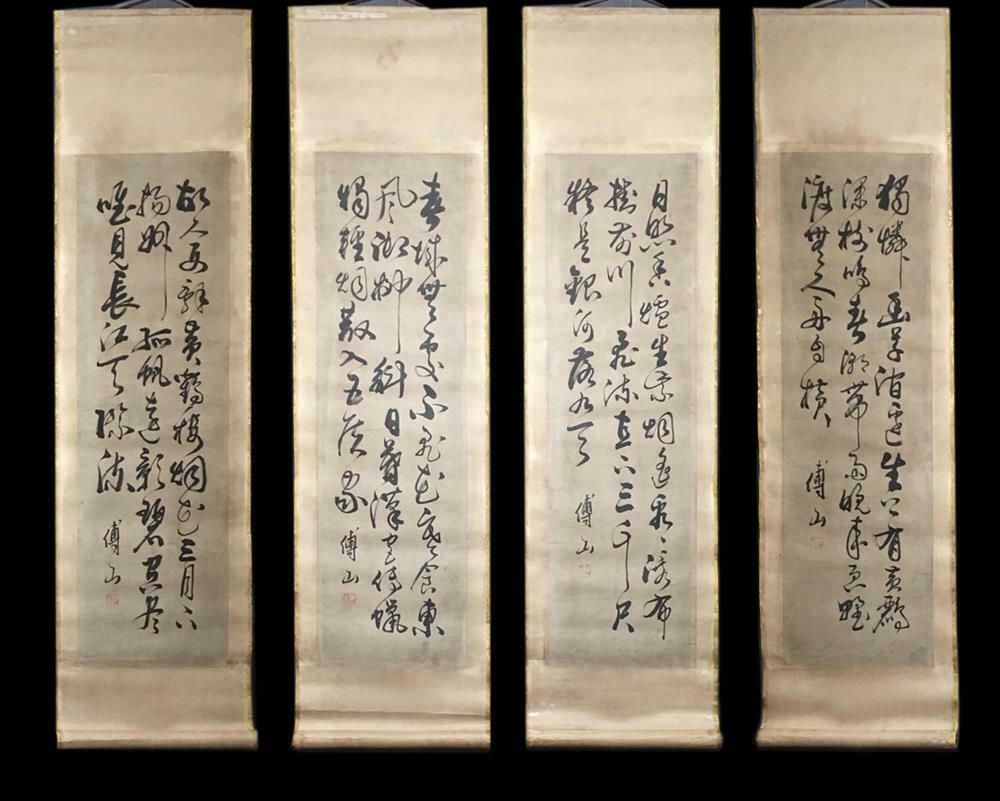 獨憐幽草澗邊生上有黃鸝
深樹鳴春潮帶雨晚來急野
渡無人舟自橫
傅山
日照香爐生紫烟遙看瀑布
掛前川飛流直下三千尺
疑是銀河落九天
傅山
春城無處不飛花寒食東
風御柳斜日暮漢宮傳蠟
燭輕烟散入五侯家
傅山
故人西辭黃鶴樓烟花三月下
揚州孤帆遠影碧空盡
唯見長江天際流
傅山